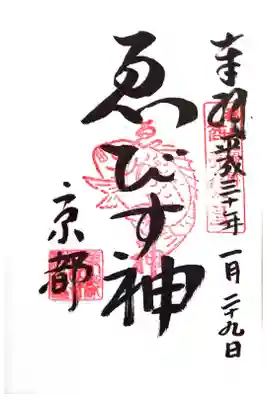 奉拝 平成三十年 一月二十九日
ゑびす神
京都